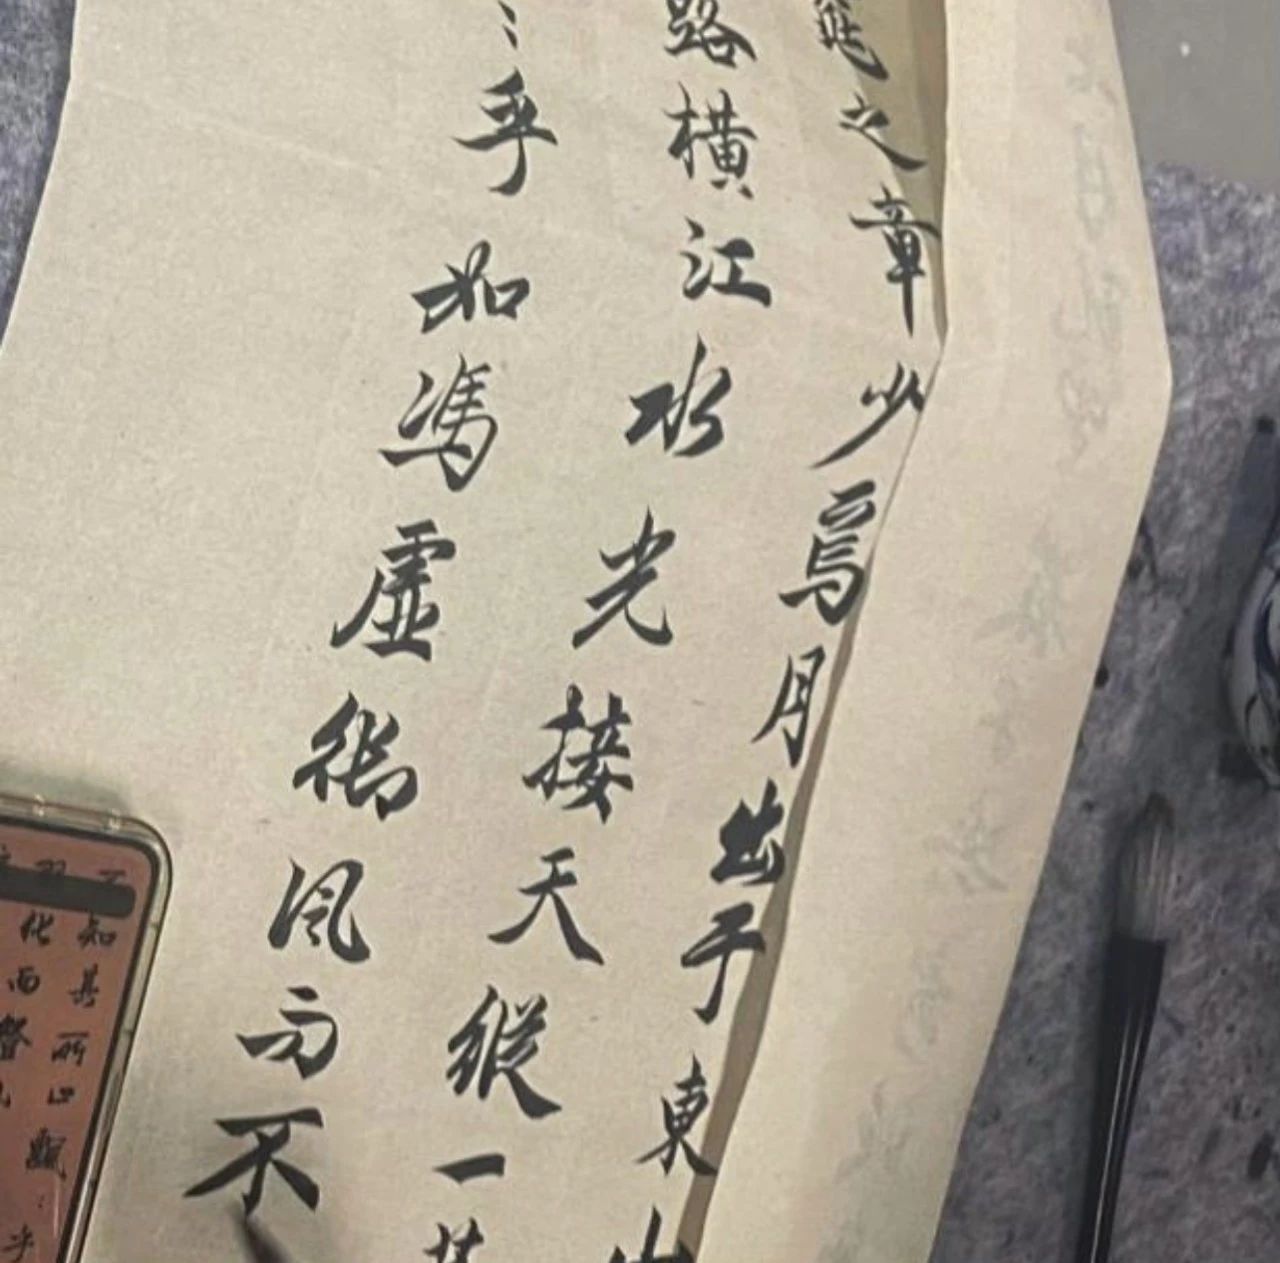 窕之章少焉月出于東山
路橫江水光接天縱一葦
乎如馮虛御風而不
知其所止飄
化而登